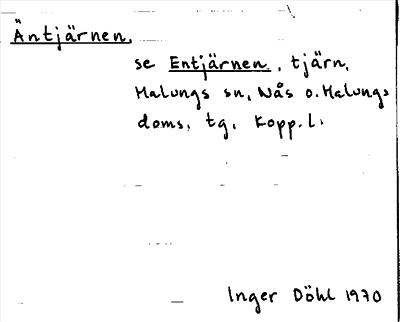 Äntjärnen,
se Entjärnen, tjärn,
Malungs sn, Nås o. Malungs
doms. tg, Kopp. l.
Inger Döhl 1970